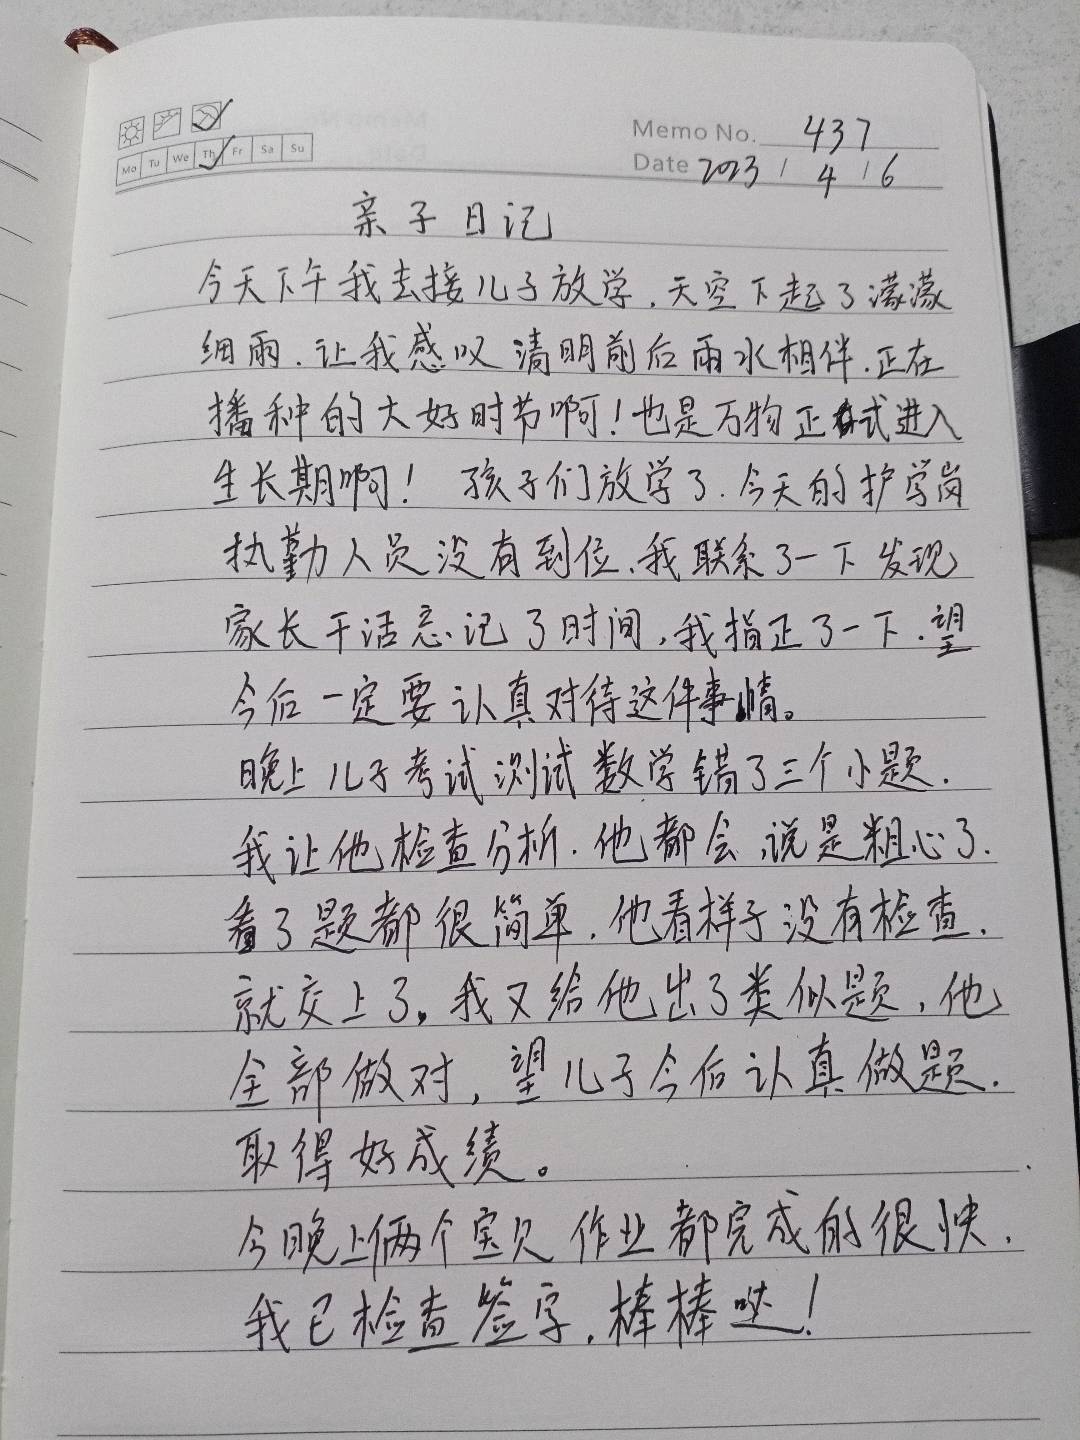 Memo No. 437
Mo Tu We Th Fr Sa Su
Date 2023 / 4 / 6
亲子日记
今天下午我去接儿子放学.天空下起了濛濛
细雨.让我感叹清明前后雨水相伴.正在
播种的大好时节啊!也是万物正式进入
生长期啊! 孩子们放学了.今天的护学岗
执勤人员没有到位、我联系了一下发现
家长干活忘记了时间,我指正了一下.望
今后一定要认真对待这件事情。
晚上儿子考试测试数学错了三个小题.
我让他检查分析.他都会,说是粗心了.
看了题都很简单.他看样子没有检查.
就交上了。我又给他出了类似题,他
全部做对,望儿子今后认真做题.
取得好成绩。
今晚上俩个宝贝作业都完成的很快.
我已检查签字,棒棒哒!